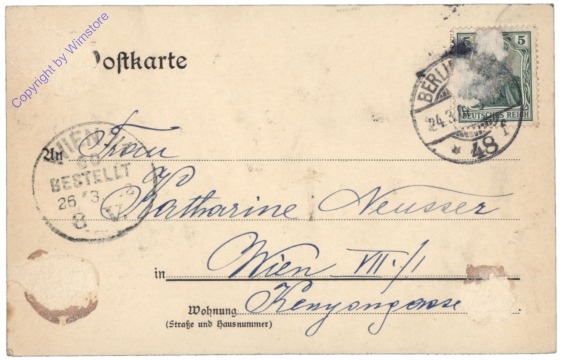 Copyright by Winstore
Postkarte
5 5
DEUTSCHES REICH
BERLIN
24.3.
* 48 f
WIEN
BESTELLT
26 3
8
An Frau
Katharine Neusser
in Wien VIII./1
Wohnung Kenyongasse
(Straße und Hausnummer)